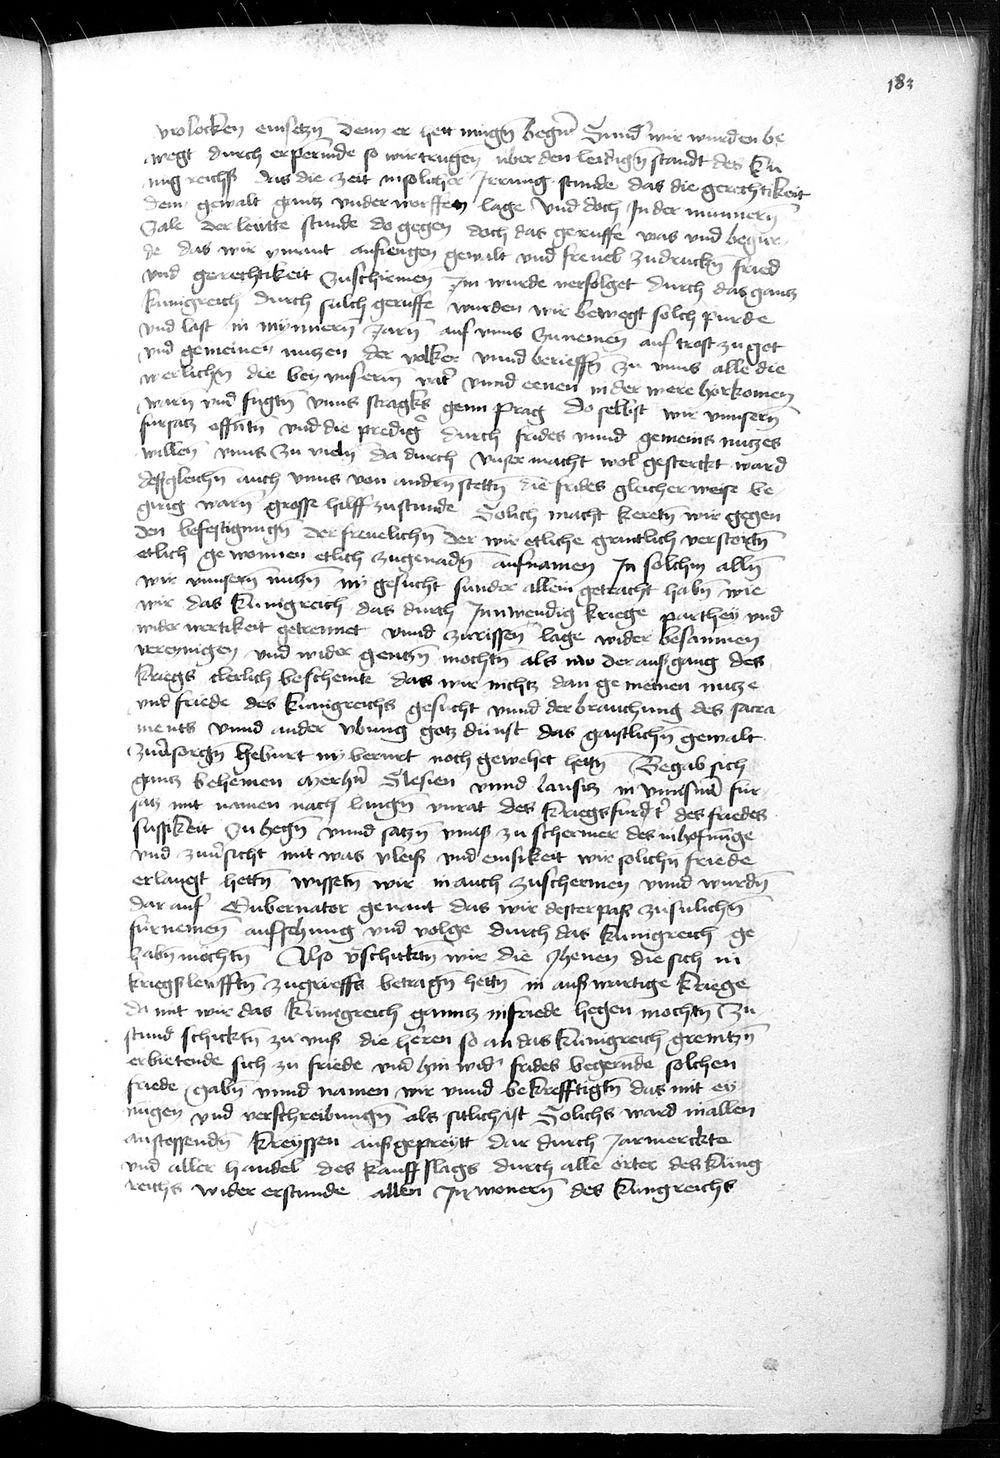 183
vrolocken einsetzn̄ denn er hett mugn̄ begir̄ Sund̄ wir wurden be
wegt durch erpermde so wir trugen uber den leidign̄ standt des Ku
nig reichs das die zeit in solicher Irrung stunde das die gerechtikeit
dem gewalt gantz under worffen lage Und doch In der mynnern̄
Zale der lewtte stunde do gegen doch das geruffe was und begir
de das wir ymant anfiengen gewalt und frevel zudruckn̄ fried
und gerechtikeit Zuschirmen Im wurde vervolget durch das gantz
kunigreich durch sulch geruffe wurden wir bewegt solch purde
und last in mynnern̄ Jarn̄ auf unns Zunemen auf trost zu got
und gemeinen nutzen der volker unnd berieffn̄ zu unns alle die
werlichn̄ die bey unserm̄ vat̄ unnd eenen in der were herkomen
warn̄ und fugtn̄ unns stragks genn Prag do selbst wir unnsern̄
fursatz offntn̄ und die prediḡ durch frides unnd gemeins nutzes
willen unns Zu vieln̄ da durch unser macht wol gesterckt ward
desgleichn̄ auch unns von andrn̄ stettn̄ die frides gleicher weise be
girig warn̄ grosse hilff zustunde Solich macht kertn̄ wir gegen
den befestigungn̄ der frevelichn̄ der wir etliche gruntlich verstortn̄
etlich gewonnen etlich zugenadn̄ aufnamen In solchm alln̄
wir unnsern̄ nutzn̄ ny gesucht sunder allein getracht habn̄ wie
wir das kunigreich das durch Innwendig kriege parthey und
widerwertikeit getrennet unnd zurissen lage wider besamnen
vereynigen und wider gentzn̄ mochtn̄ als nw der ausgang des
kriegs clerlich bescheinte das wir nichtz dan gemeinen nutze
und friede des kunigreichs gesucht unnd der brauchung des sacra
ments unnd ander ubung gotz dinst das gaistlichn̄ gewalt
zuv̄sorgn̄ geburt ny berurt noch gewehet hettn̄ Begab sich
gantz behemen Merhn̄ Slesien unnd lausitz in unnsn̄ fur
satz mit namen nach langn̄ unrat des kriegs furdt̄ des friedes
sussikeit Zu hegn̄ unnd satzn̄ unns zu schermer des in hofnunge
und zuv̄sicht mit was vleiss und emsikeit wir solichn̄ friede
erlangt hettn̄ wissetn̄ wir in auch zuschermen unnd wurdn̄
dar auf Gubernator genant das wir dester pass zusulichn̄
furnemen aufsehung und volge durch das kunigreich ge
habn̄ mochtn̄ Also v̄schicktn̄ wir die Jhenen die sich in
kriegslewfftn̄ zugrieffs betragn̄ hettn̄ in auswartige kriege
damit wir das kunigreich gantz in friede hegen mochtn̄ Zu
stund schicktn̄ zu unss die heren so an das kunigreich grenitzn̄
erbietende sich zu friede und hin wid̄ frides begernde solchen
friede gabn̄ unnd namen wir unnd bekrefftigtn̄ das mit ey
nugen und verschreibungn̄ als sitlich ist Solichs ward in allen
anstossendn̄ kreyssen aussgepreytt dar durch Jarmerckte
und aller handel des kauffslags durch alle orter des kung
reichs wider erstunde allen Inwonern̄ des kungreichs